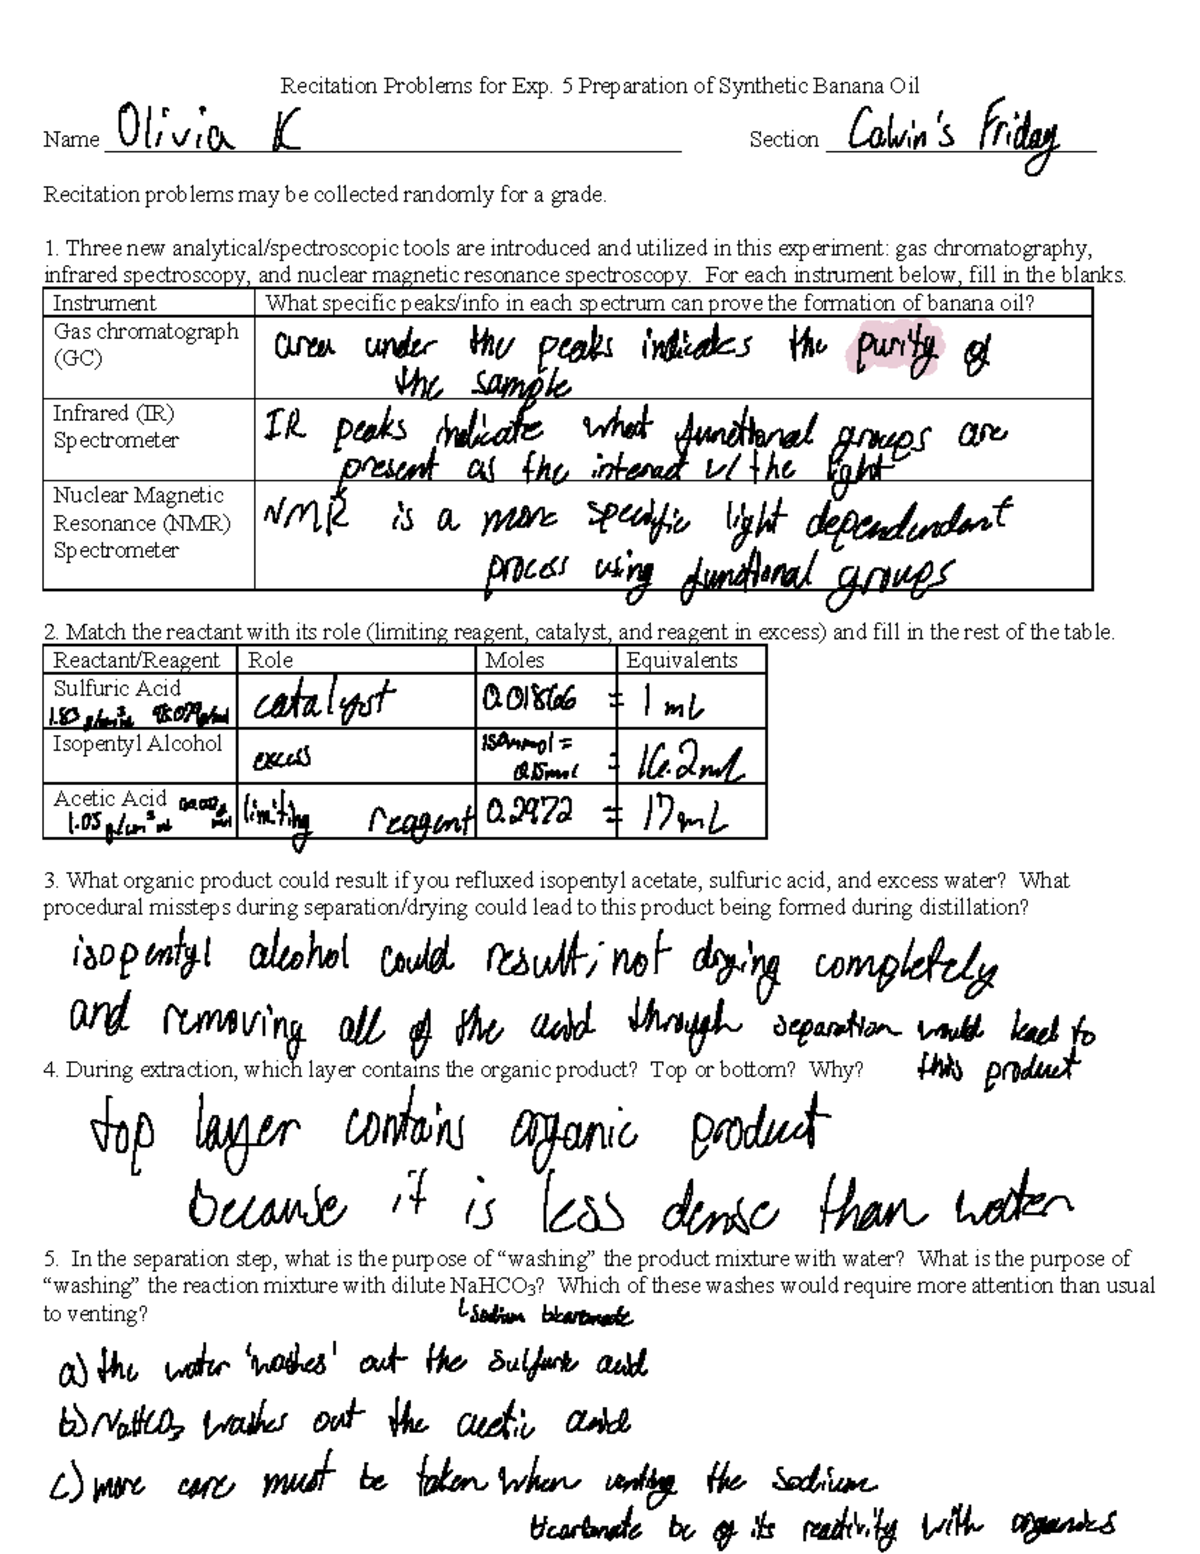 Recitation Problems for Exp. 5 Preparation of Synthetic Banana Oil
Name Olivia K Section Calvin's Friday
Recitation problems may be collected randomly for a grade.
1. Three new analytical/spectroscopic tools are introduced and utilized in this experiment: gas chromatography,
infrared spectroscopy, and nuclear magnetic resonance spectroscopy. For each instrument below, fill in the blanks.
Instrument What specific peaks/info in each spectrum can prove the formation of banana oil?
Gas chromatograph area under the peaks indicates the purity of
(GC) the sample
Infrared (IR) IR peaks indicate what functional groups are
Spectrometer present as the interact w/ the light
Nuclear Magnetic NMR is a more specific light dependendant
Resonance (NMR) process using functional groups
Spectrometer
2. Match the reactant with its role (limiting reagent, catalyst, and reagent in excess) and fill in the rest of the table.
Reactant/Reagent Role Moles Equivalents
Sulfuric Acid catalyst 0.01866 = 1 mL
1.83 g/cm³ 98.079 g/mol
Isopentyl Alcohol excess 150mmol = = 16.2mL
0.15mol
Acetic Acid limiting reagent 0.2972 = 17mL
1.05 g/cm³
3. What organic product could result if you refluxed isopentyl acetate, sulfuric acid, and excess water? What
procedural missteps during separation/drying could lead to this product being formed during distillation?
isopentyl alcohol could result; not drying completely
and removing all of the acid through separation would lead to
this product
4. During extraction, which layer contains the organic product? Top or bottom? Why?
top layer contains organic product
because it is less dense than water
5. In the separation step, what is the purpose of “washing” the product mixture with water? What is the purpose of
“washing” the reaction mixture with dilute NaHCO3? Which of these washes would require more attention than usual
to venting? sodium bicarbonate
a) the water 'washes' out the sulfuric acid
b) NaHCO3 washes out the acetic acid
c) more care must be taken when venting the sodium
bicarbonate bc of its reactivity with organics